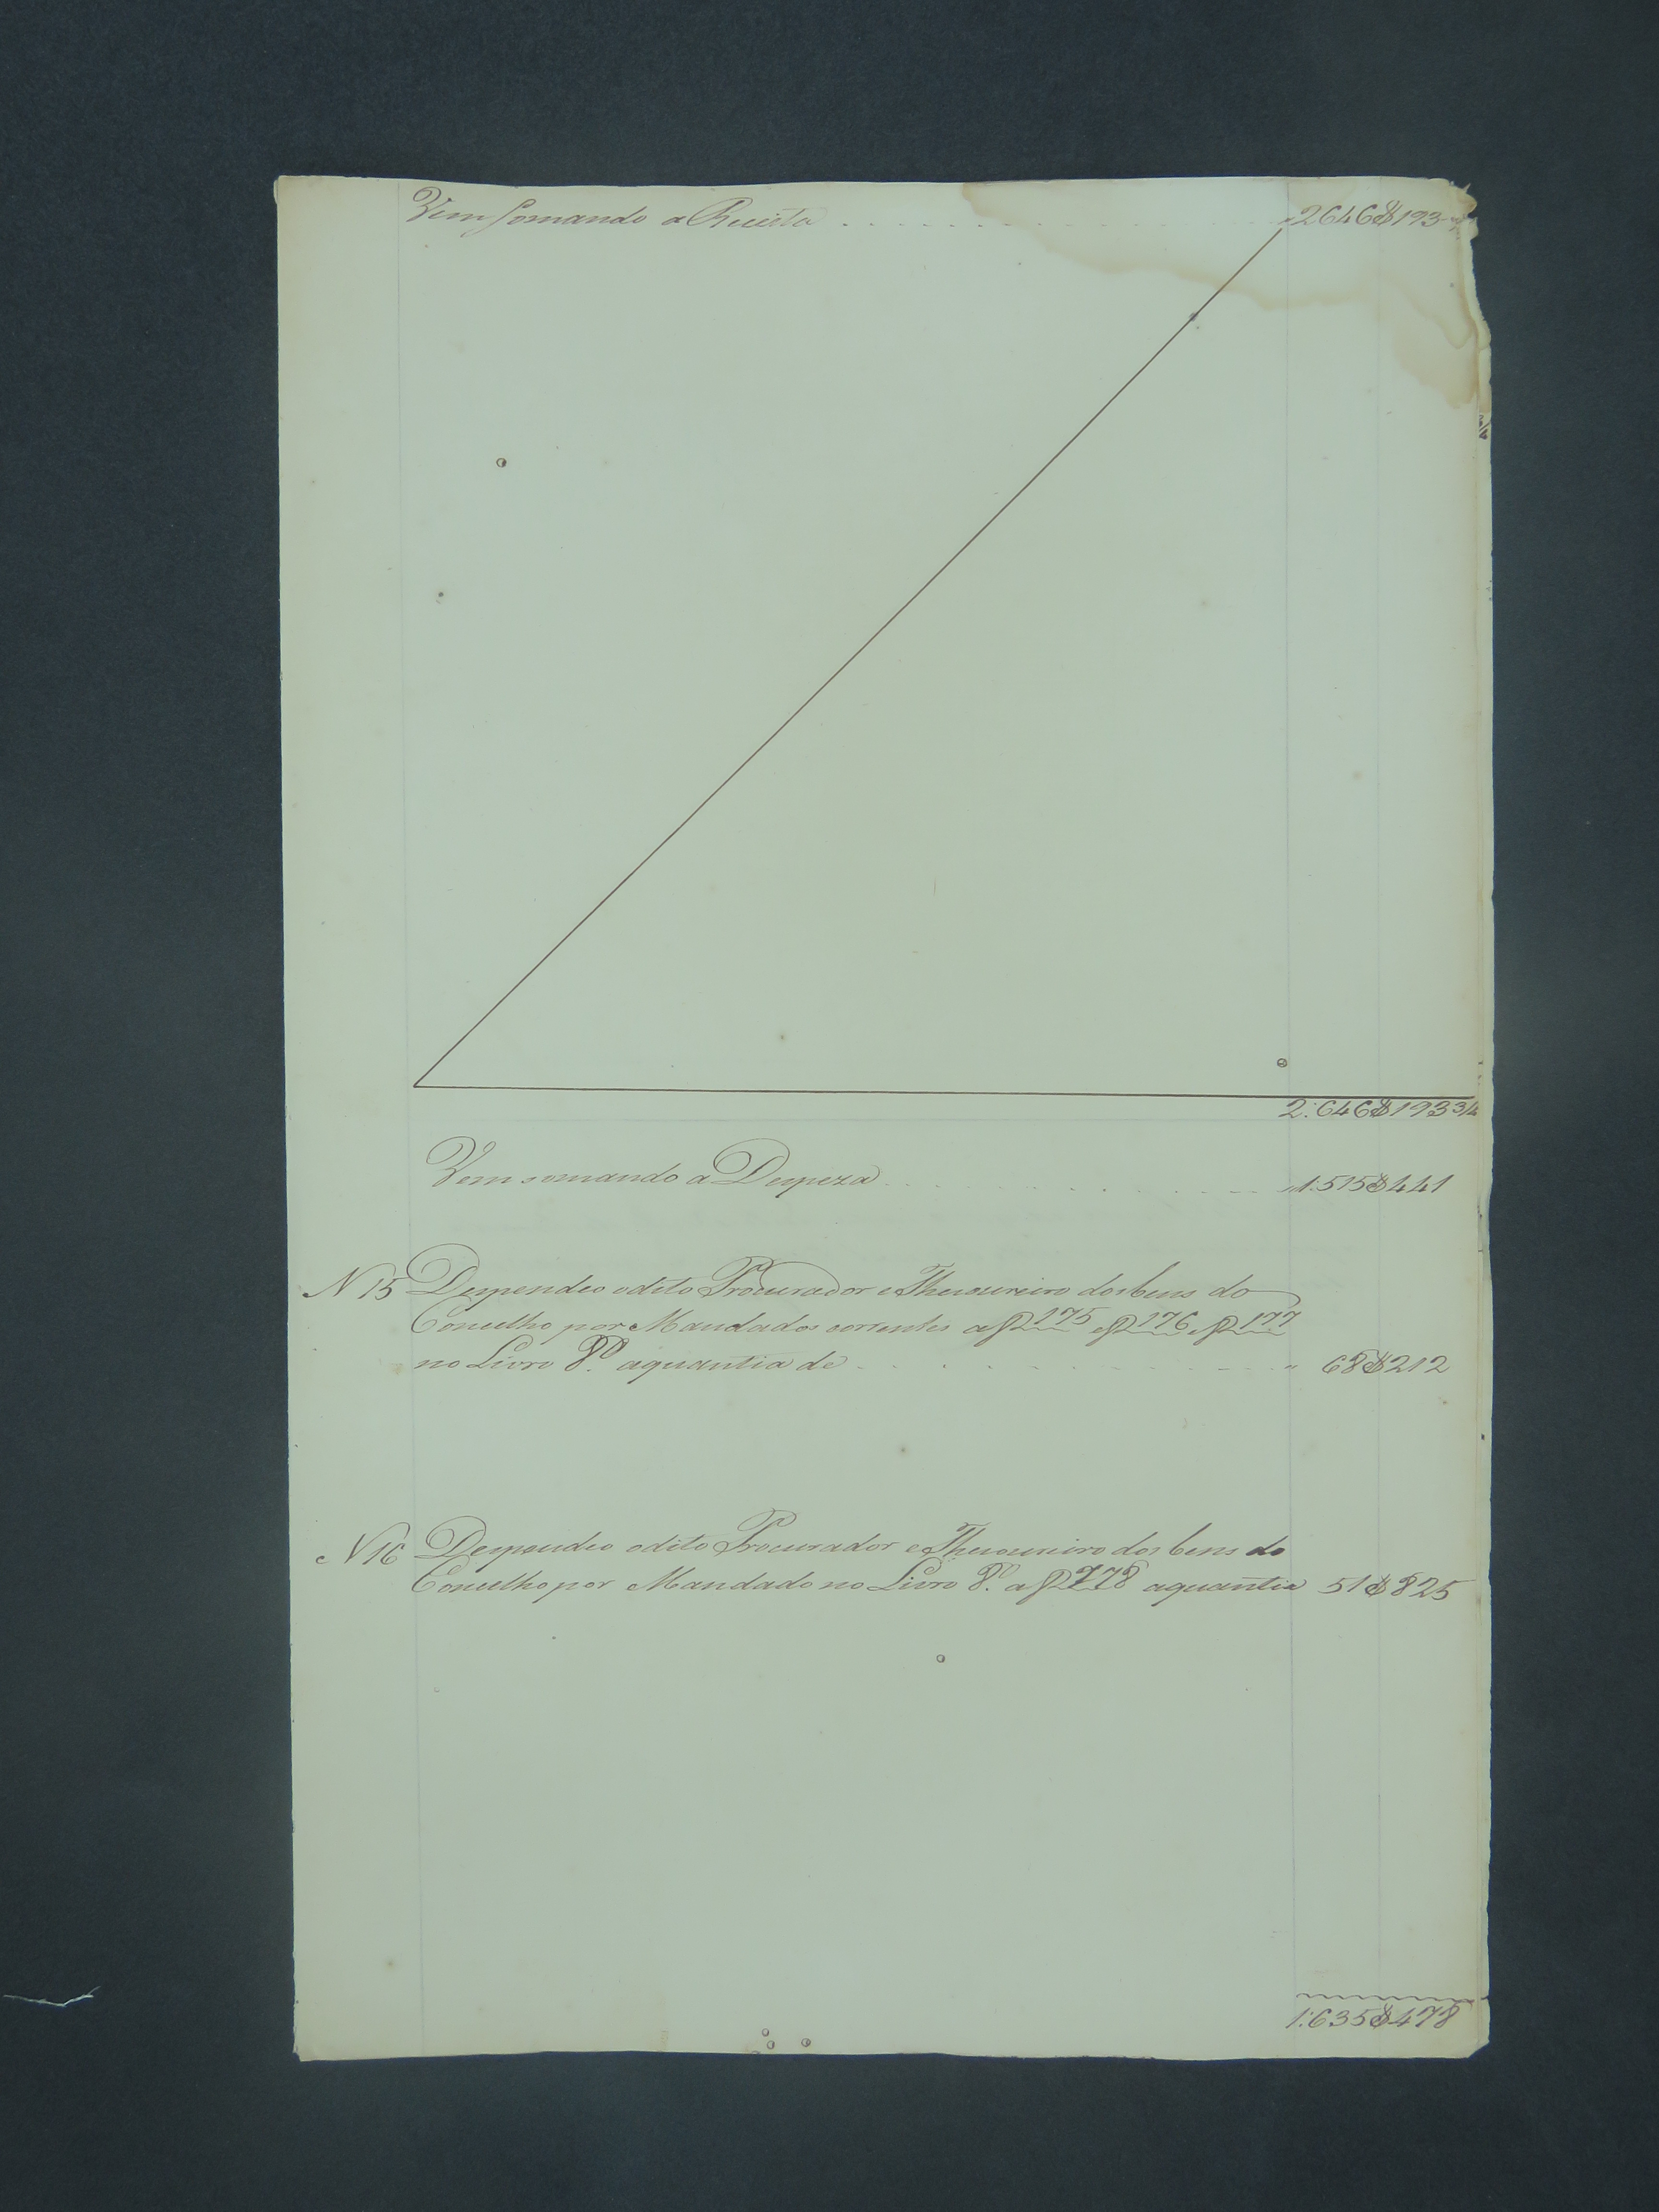 Vem somando a Receita . . . . . . . . . . . . . . 2646$193
2:646$193 3/4
Vem somando a Despeza . . . . . . . . . . . . . . 1:515$441
N 15 Despendeo o dito Procurador e Thesoureiro dos bens do
Concelho por Mandados correntes a f 175 e f 176 e f 177
no Livro 8º. a quantia de . . . . . . . . . . . . . " 68$212
N 16 Despendeo o dito Procurador e Thesoureiro dos bens do
Concelho por Mandado no Livro 8º. a f 178 a quantia 51$825
1:635$478